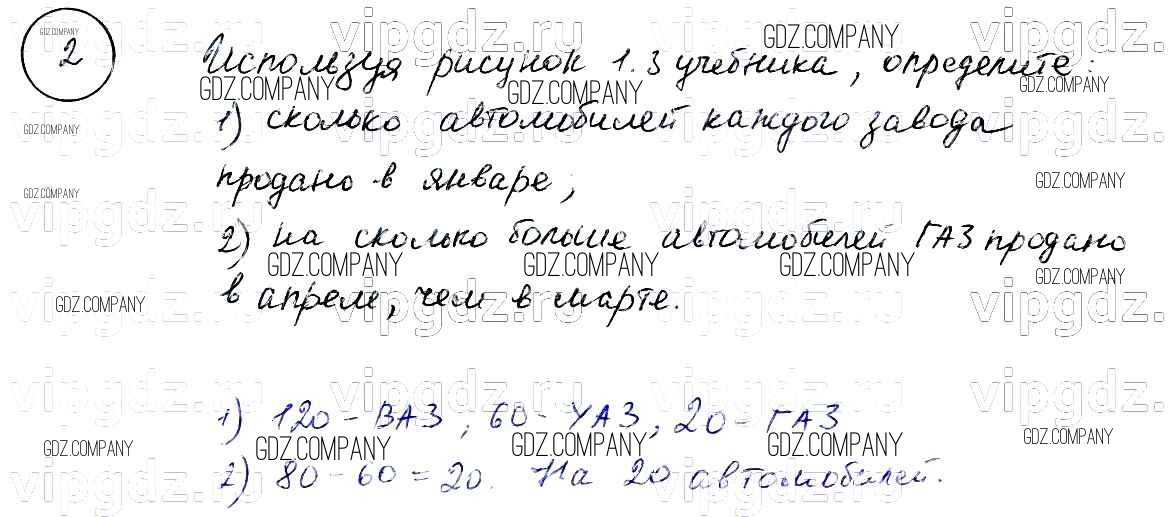 2 Используя рисунок 1.3 учебника, определите:
1) сколько автомобилей каждого завода
продано в январе;
2) на сколько больше автомобилей ГАЗ продано
в апреле, чем в марте.
1) 120 - ВАЗ, 60 - УАЗ, 20 - ГАЗ
2) 80 - 60 = 20. На 20 автомобилей.